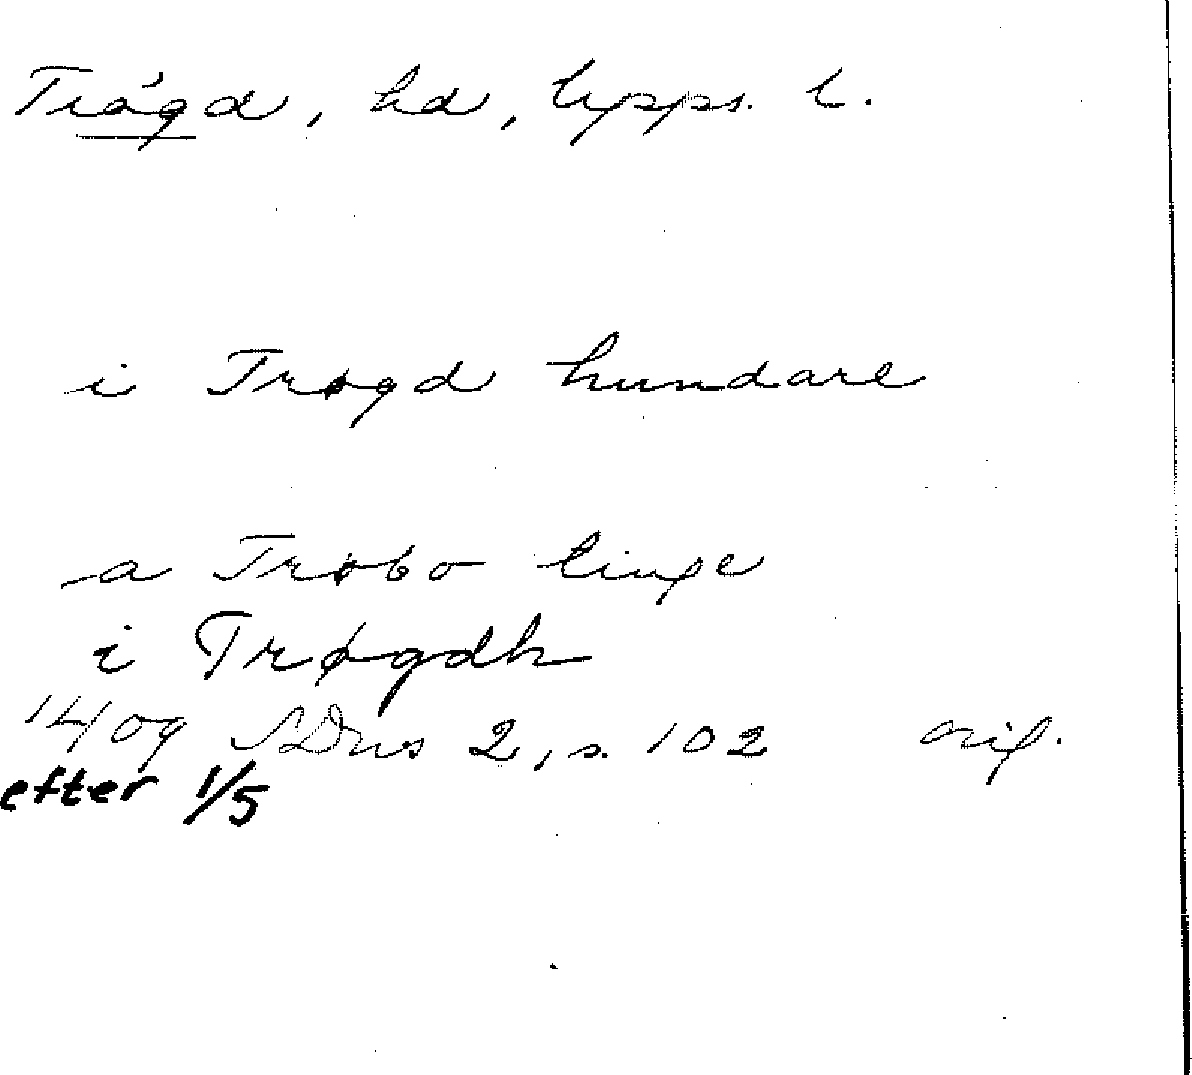 Trögd, hd, Upps. l.
i Trøgd hundare
a Trøbo tinge
i Trøgdh
1409 SDns 2, s. 102 orig.
efter 1/5